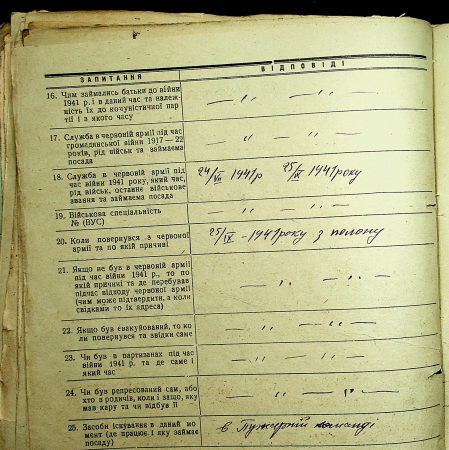 ЗАПИТАННЯ
ВІДПОВІДІ
16. Чим займались батьки до війни
1941 р. і в даний час та належ-
ність їх до комуністичної пар-
тії і з якого часу
— „ — „ —
17. Служба в червоній армії під час
громадянської війни 1917—22
років, рід військ та займаєма
посада
— „ — „ —
18. Служба в червоній армії під
час війни 1941 року, який час,
рід військ, останнє військове
звання та займаєма посада
24/VII 1941 р 25/IX 1941 року
19. Військова спеціальність
№ (ВУС)
— „ — „ —
20. Коли повернувся в червоної
армії та по якій причині
25/IX — 1941 року з полону
21. Якщо не був в червоній армії
під час війни 1941 р., то по
якій причині та де перебував
підчас відходу червоної армії
(чим може підтвердити, а коли
свідками то їх адреса)
— „ — „ —
22. Якщо був евакуйований, то ко
ли повернувся та звідки саме
— „ — „ —
23. Чи був в партизанах під час
війни 1941 р. та де саме і
який час
— „ — „ —
24. Чи був репресований сам, або
хто з родичів, коли і защо, яку
мав кару та чи відбув її
— „ — „ —
25. Засоби існування в даний мо
мент (де працює і яку займає
посаду)
в команді